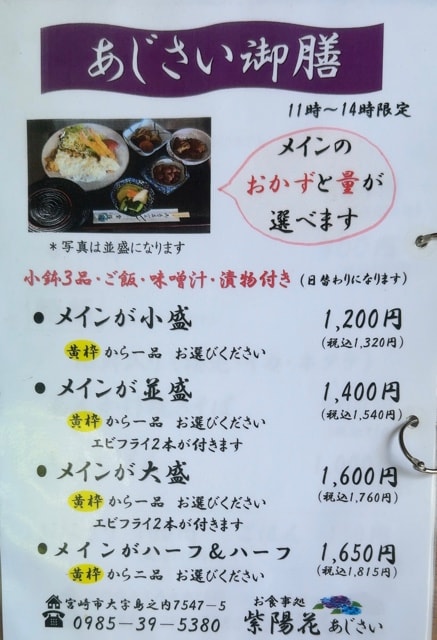 あじさい御膳
11時〜14時限定
メインの
おかずと量が
選べます
＊写真は並盛になります
小鉢3品・ご飯・味噌汁・漬物付き（日替わりになります）
● メインが小盛 1,200円
（税込1,320円）
黄枠から一品 お選びください
● メインが並盛 1,400円
（税込1,540円）
黄枠から一品 お選びください
エビフライ2本が付きます
● メインが大盛 1,600円
（税込1,760円）
黄枠から一品 お選びください
エビフライ2本が付きます
● メインがハーフ＆ハーフ 1,650円
（税込1,815円）
黄枠から二品 お選びください
宮崎市大字島之内7547－5
0985－39－5380
お食事処
紫陽花 あじさい